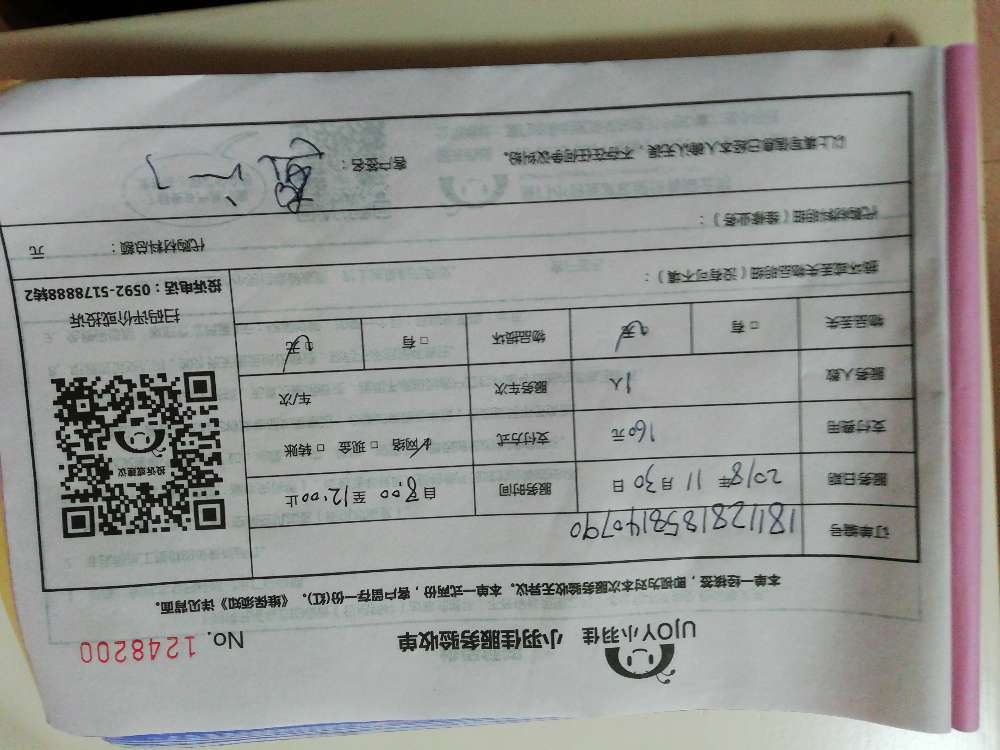 UJOY小羽佳 小羽佳服务验收单 No. 1248200
本单一经接签，即视为对本次服务验收无异议。本单一式两份，客户留存一份(红)。《维保须知》详见背面。
订单编号 1811281858140790
服务日期 2018年 11月 30日 服务时间 自 8:00 至 12:00 止
支付费用 160元 支付方式 ☑网络 □现金 □转账
服务人数 1人 服务车次 车/次
物品丢失 □有 ☑无 物品损坏 □有 ☑无
投诉或建议
扫码评价或投诉
投诉电话：0592-5178888转2
损坏或丢失物品明细（没有可不填）：
代购材料明细（维修业务）：
代购材料总额： 元
以上填写信息已经本人确认无误，不存在任何争议纠纷。 客户签名：